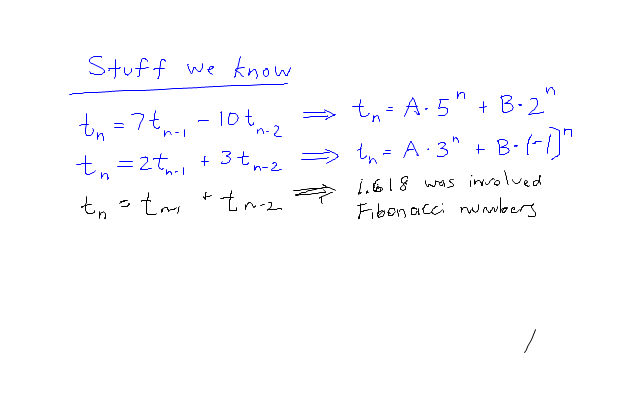 Stuff we know
tₙ = 7tₙ₋₁ - 10tₙ₋₂ ⟹ tₙ = A·5ⁿ + B·2ⁿ
tₙ = 2tₙ₋₁ + 3tₙ₋₂ ⟹ tₙ = A·3ⁿ + B·(-1)ⁿ
tₙ = tₙ₋₁ + tₙ₋₂ ⟹ 1.618 was involved
Fibonacci numbers